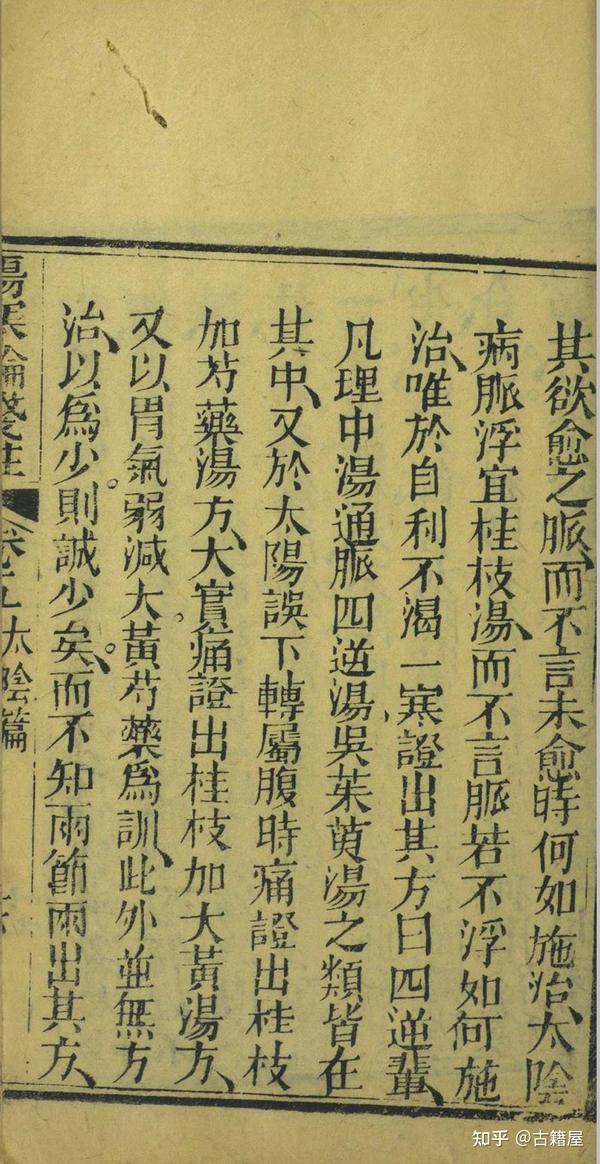 其欲愈之脈、而不言未愈時何如施治、太陰
病脈浮宜桂枝湯、而不言脈若不浮如何施
治、唯於自利不渴一寒證出其方曰四逆輩、
凡理中湯通脈四逆湯吳茱萸湯之類皆在
其中、又於太陽誤下轉屬腹時痛證出桂枝
加芍藥湯方、大實痛證出桂枝加大黃湯方、
又以胃氣弱減大黃芍藥爲訓、此外並無方
治、以爲少。則誠少矣。、而不知兩節兩出其方、
傷寒論淺註 卷五太陰篇
知乎 @古籍屋